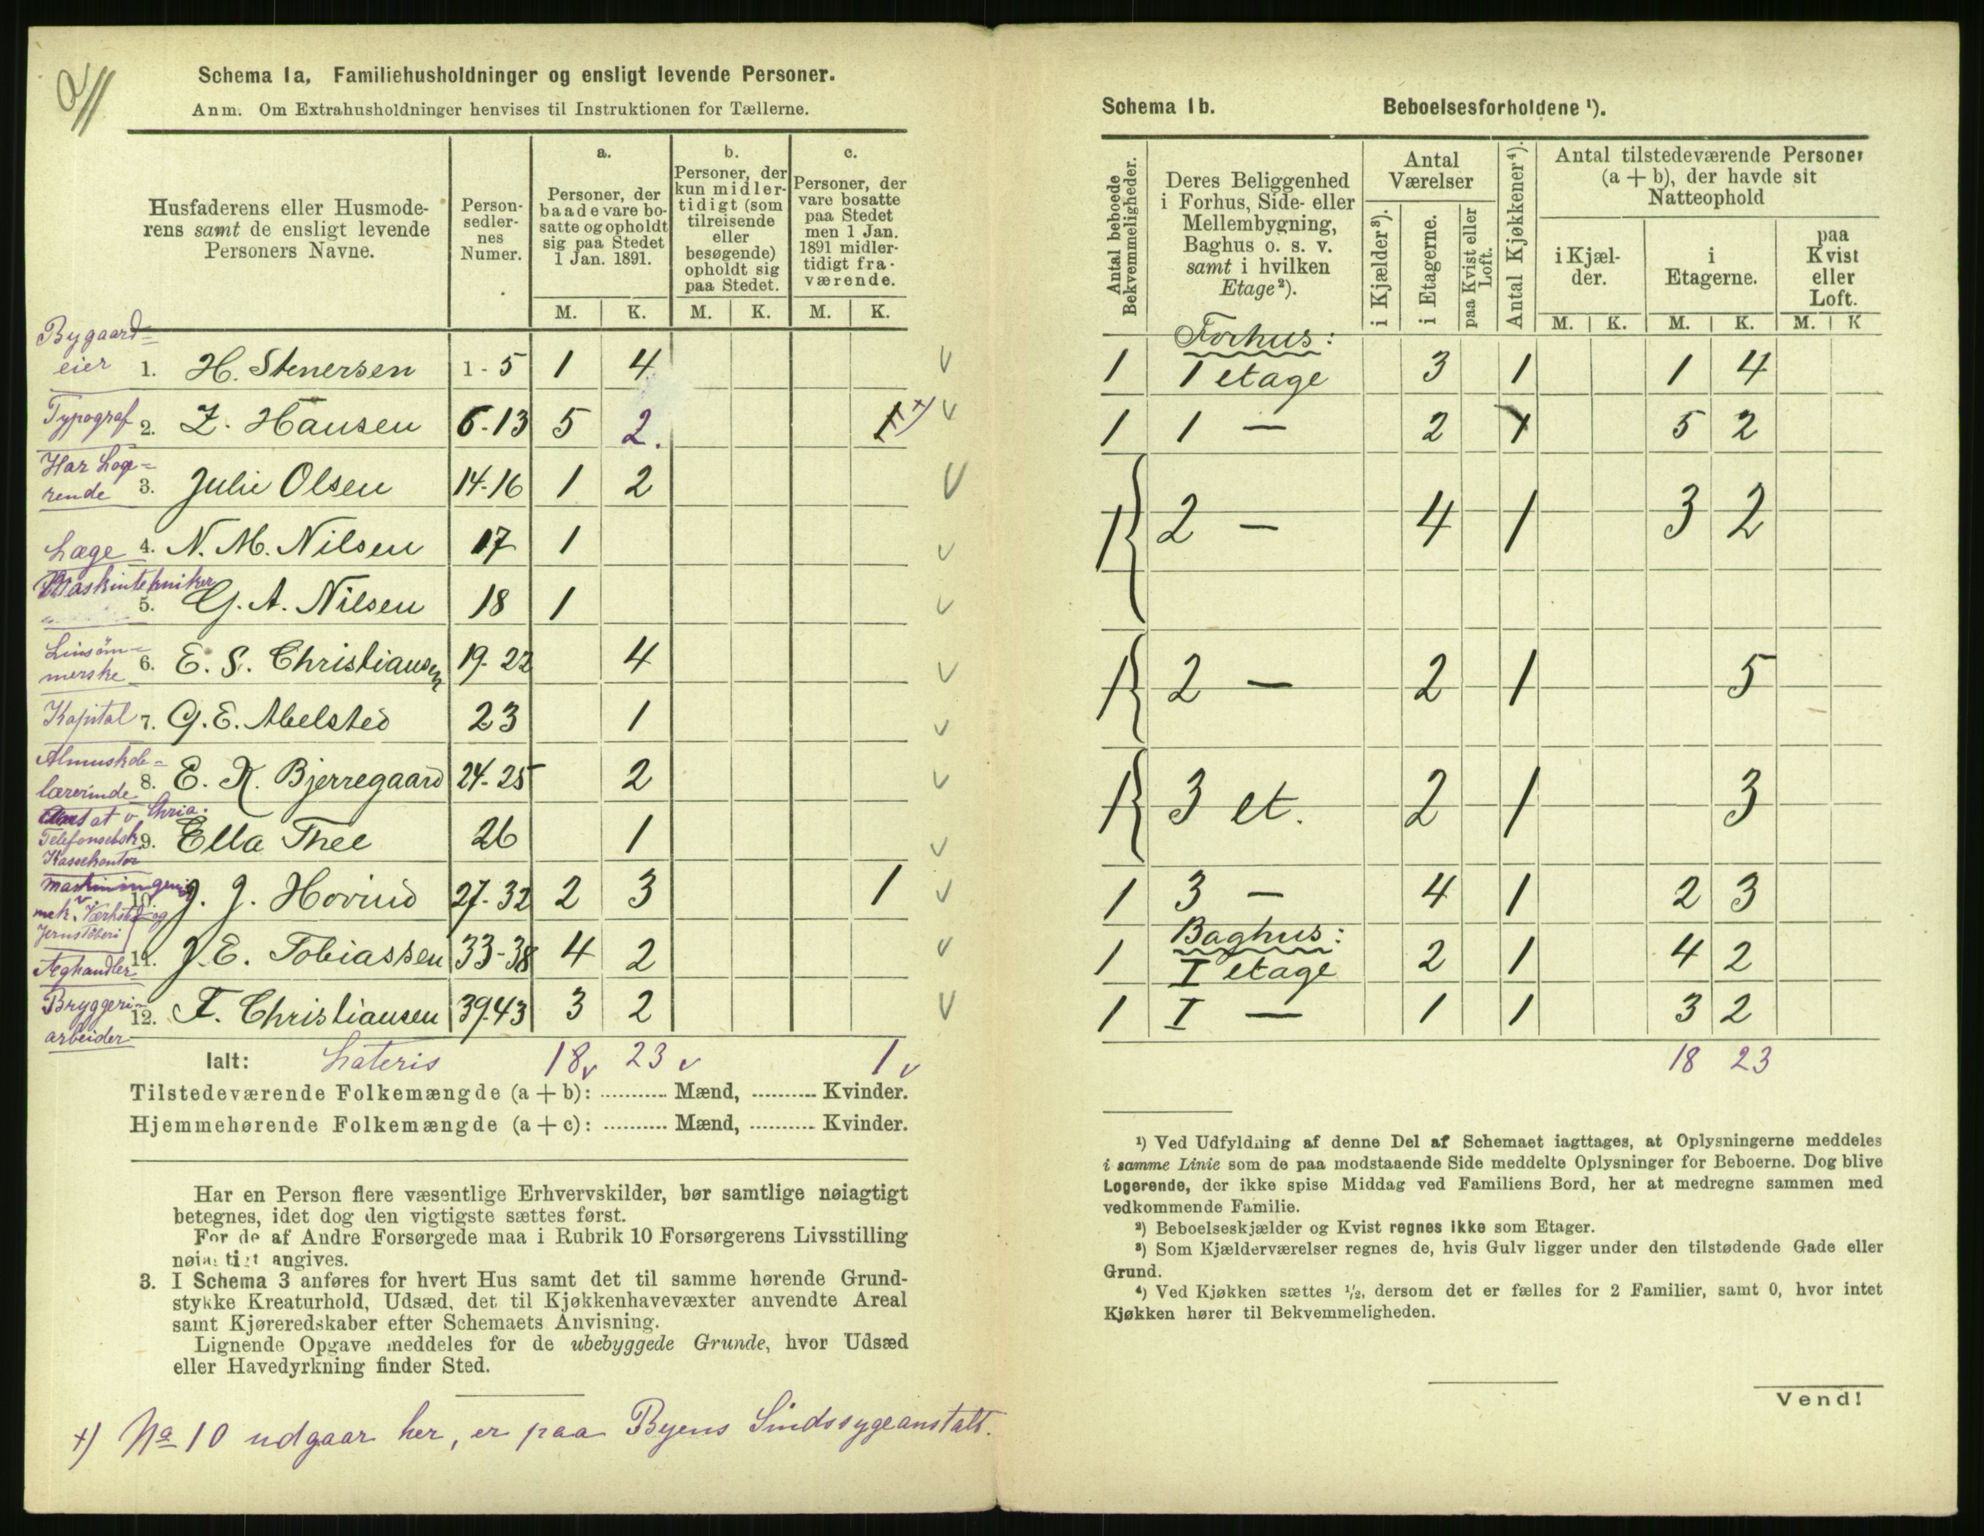 Schema 1a, Familiehusholdninger og ensligt levende Personer.
Anm. Om Extrahusholdninger henvises til Instruktionen for Tællerne.
Husfaderens eller Husmode-
rens samt de ensligt levende
Personers Navne.
Person-
sedler-
nes
Numer.
a.
Personer, der
baade vare bo-
satte og opholdt
sig paa Stedet
1 Jan. 1891.
b.
Personer, der
kun midler-
tidigt (som
tilreisende
eller
besøgende)
opholdt sig
paa Stedet.
c.
Personer, der
vare bosatte
paa Stedet
men 1 Jan.
1891 midler-
tidigt fra-
værende.
M. K. M. K. M. K.
Bygaard=
eier 1. H. Stenersen 1-5 1 4
Typograf 2. Z. Hansen 6-13 5 2. 1 +)
Har Loge=
rende 3. Julie Olsen 14-16 1 2
Læge 4. N. M. Nilsen 17 1
Maskintekniker
5. G. A. Nilsen 18 1
Linsøm=
merske 6. E. S. Christiansen 19-22 4
Kapital 7. G. E. Abelsted 23 1
Almuskole=
lærerinde 8. E. K. Bjerregaard 24-25 2
Ansat v. Chria.
Telefonselsk. 9. Ella Thee 26 1
Kassekontor
maskiningeniør
mek. Værksted og 10. J. J. Hovind 27-32 2 3 1
Jernstøberi
Æghandler 11. J. E. Tobiassen 33-38 4 2
Bryggeri=
arbeider 12. F. Christiansen 39-43 3 2
Ialt: Lateris 18 23 1
Tilstedeværende Folkemængde (a + b): ........... Mænd, ........... Kvinder.
Hjemmehørende Folkemængde (a + c): ........... Mænd, ........... Kvinder.
Har en Person flere væsentlige Erhvervskilder, bør samtlige nøiagtigt
betegnes, idet dog den vigtigste sættes først.
For de af Andre Forsørgede maa i Rubrik 10 Forsørgerens Livsstilling
nøiagtigt angives.
3. I Schema 3 anføres for hvert Hus samt det til samme hørende Grund-
stykke Kreaturhold, Udsæd, det til Kjøkkenhavevæxter anvendte Areal
samt Kjøreredskaber efter Schemaets Anvisning.
Lignende Opgave meddeles for de ubebyggede Grunde, hvor Udsæd
eller Havedyrkning finder Sted.
+) No 10 udgaar her, er paa Byens Sindssygeanstalt.
Schema 1b. Beboelsesforholdene ¹).
Antal beboede
Bekvemmeligheder.
Deres Beliggenhed
i Forhus, Side- eller
Mellembygning,
Baghus o. s. v.
samt i hvilken
Etage²).
Antal
Værelser
i Kjælder³).
i Etagerne.
paa Kvist eller
Loft.
Antal Kjøkkener⁴).
Antal tilstedeværende Personer
(a + b), der havde sit
Natteophold
i Kjæl-
der.
i
Etagerne.
paa
Kvist
eller
Loft.
M. K. M. K. M. K
Forhus:
1 1 etage 3 1 1 4
1 1 — 2 1 5 2
1 2 — 4 1 3 2
1 2 — 2 1 5
1 3 et. 2 1 3
1 3 — 4 1 2 3
Baghus:
1 I etage 2 1 4 2
1 I — 1 1 3 2
18 23
¹) Ved Udfyldning af denne Del af Schemaet iagttages, at Oplysningerne meddeles
i samme Linie som de paa modstaaende Side meddelte Oplysninger for Beboerne. Dog blive
Logerende, der ikke spise Middag ved Familiens Bord, her at medregne sammen med
vedkommende Familie.
²) Beboelseskjælder og Kvist regnes ikke som Etager.
³) Som Kjælderværelser regnes de, hvis Gulv ligger under den tilstødende Gade eller
Grund.
⁴) Ved Kjøkken sættes ½, dersom det er fælles for 2 Familier, samt 0, hvor intet
Kjøkken hører til Bekvemmeligheden.
Vend!